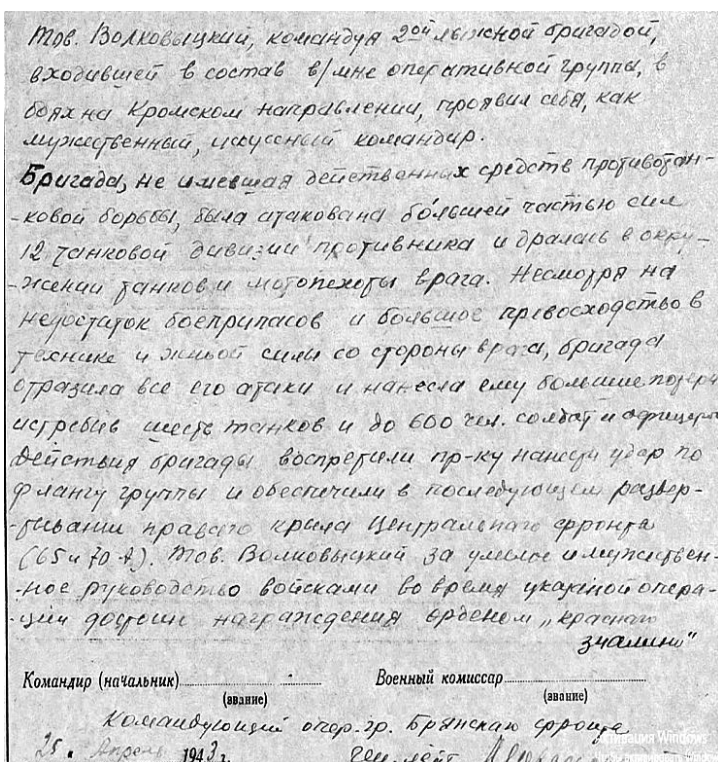 Тов. Волковыцкий, командуя 2ой лыжной бригадой,
входившей в состав в/мне оперативной группы, в
боях на Кромском направлении, проявил себя, как
мужественный, искусный командир.
Бригада, не имевшая действенных средств противотан-
-ковой борьбы, была атакована бо́льшей частью сил
12 танковой дивизии противника и дралась в окру-
-жении танков и мотопехоты врага. Несмотря на
недостаток боеприпасов и большое превосходство в
технике и живой силы со стороны врага, бригада
отразила все его атаки и нанесла ему большие потери
истребив шесть танков и до 600 чел. солдат и офицеров
Действия бригады воспретили пр-ку нанести удар по
флангу группы и обеспечили в последующем развер-
-тывании правого крыла Центрального фронта
(65 и 70 А). Тов. Волковыцкий за умелое и мужествен-
-ное руководство войсками во время указаной опера-
-ции достоин награждения орденом „красного
знамени"
Командир (начальник) Военный комиссар
(звание) (звание)
Командующий опер. гр. Брянскаго фронта
25. Апрель 1943 г. ген. лейт.
Активация Windows